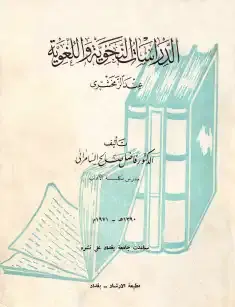 الدراسات النحوية واللغوية
عند الزمخشري
تأليف
الدكتور فاضل صالح السامرائي
مدرس بكلية الآداب
١٣٩٠هـ - ١٩٧١م
ساعدت جامعة بغداد على نشره
مطبعة الارشاد - بغداد